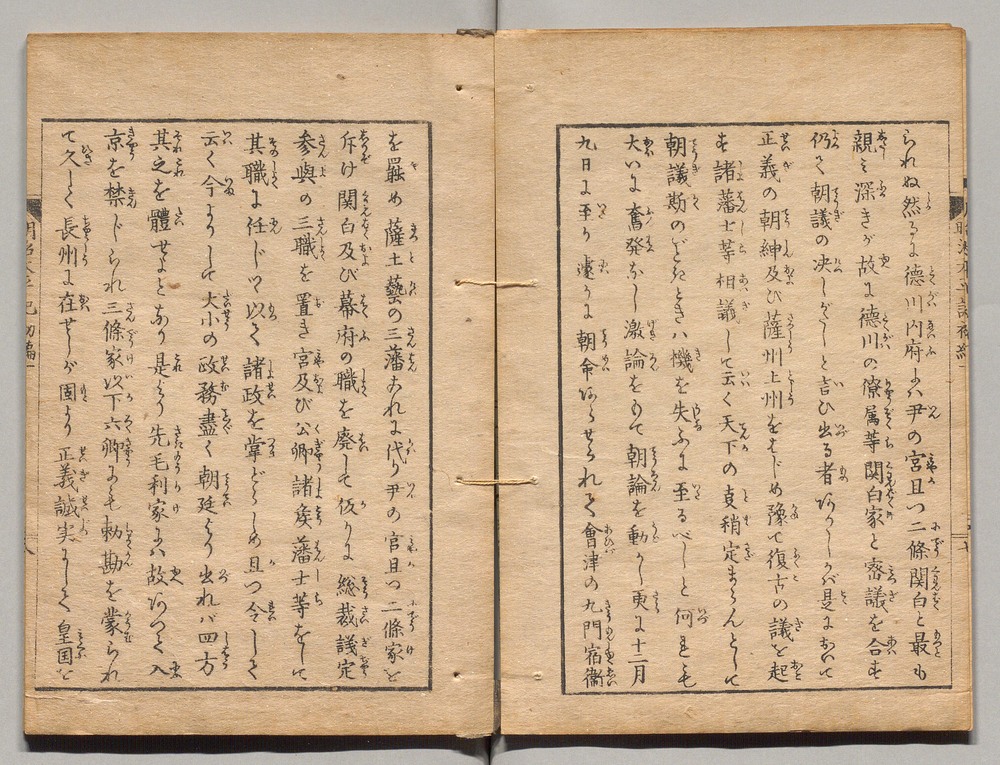 られぬ然るに徳川内府ハ尹の宮且つ二條関白と最も
親ミ深きが故に徳川の僚属等関白家と密議を合せ
仍て朝議の決しがたしと言ひ出る者ありしかバ是において
正義の朝紳及び薩州土州をはじめ豫て復古の議を起
せ諸藩士等相議して云く天下の事稍定まらんとして
朝議斯のごときときハ機を失ふに至るべしと何れも
大いに奮発なし激論をもて朝論を動かし更に十二月
九日に至り遽かに朝命あらせられて會津の九門宿衞
を罷め薩土藝の三藩これに代り尹の宮且つ二條家を
斥け関白及び幕府の職を廃して仮りに総裁議定
参與の三職を置き宮及び公卿諸矦藩士等をして
其職に任じ以て諸政を掌どらしめ且つ令して
云く今よりして大小の政務盡く朝廷より出れバ四方
其之を體せよとあり是より先毛利家ハ故ありて入
京を禁じられ三條家以下六卿にも勅勘を蒙られ
て久しく長州に在せしが固より正義誠実にして皇国を